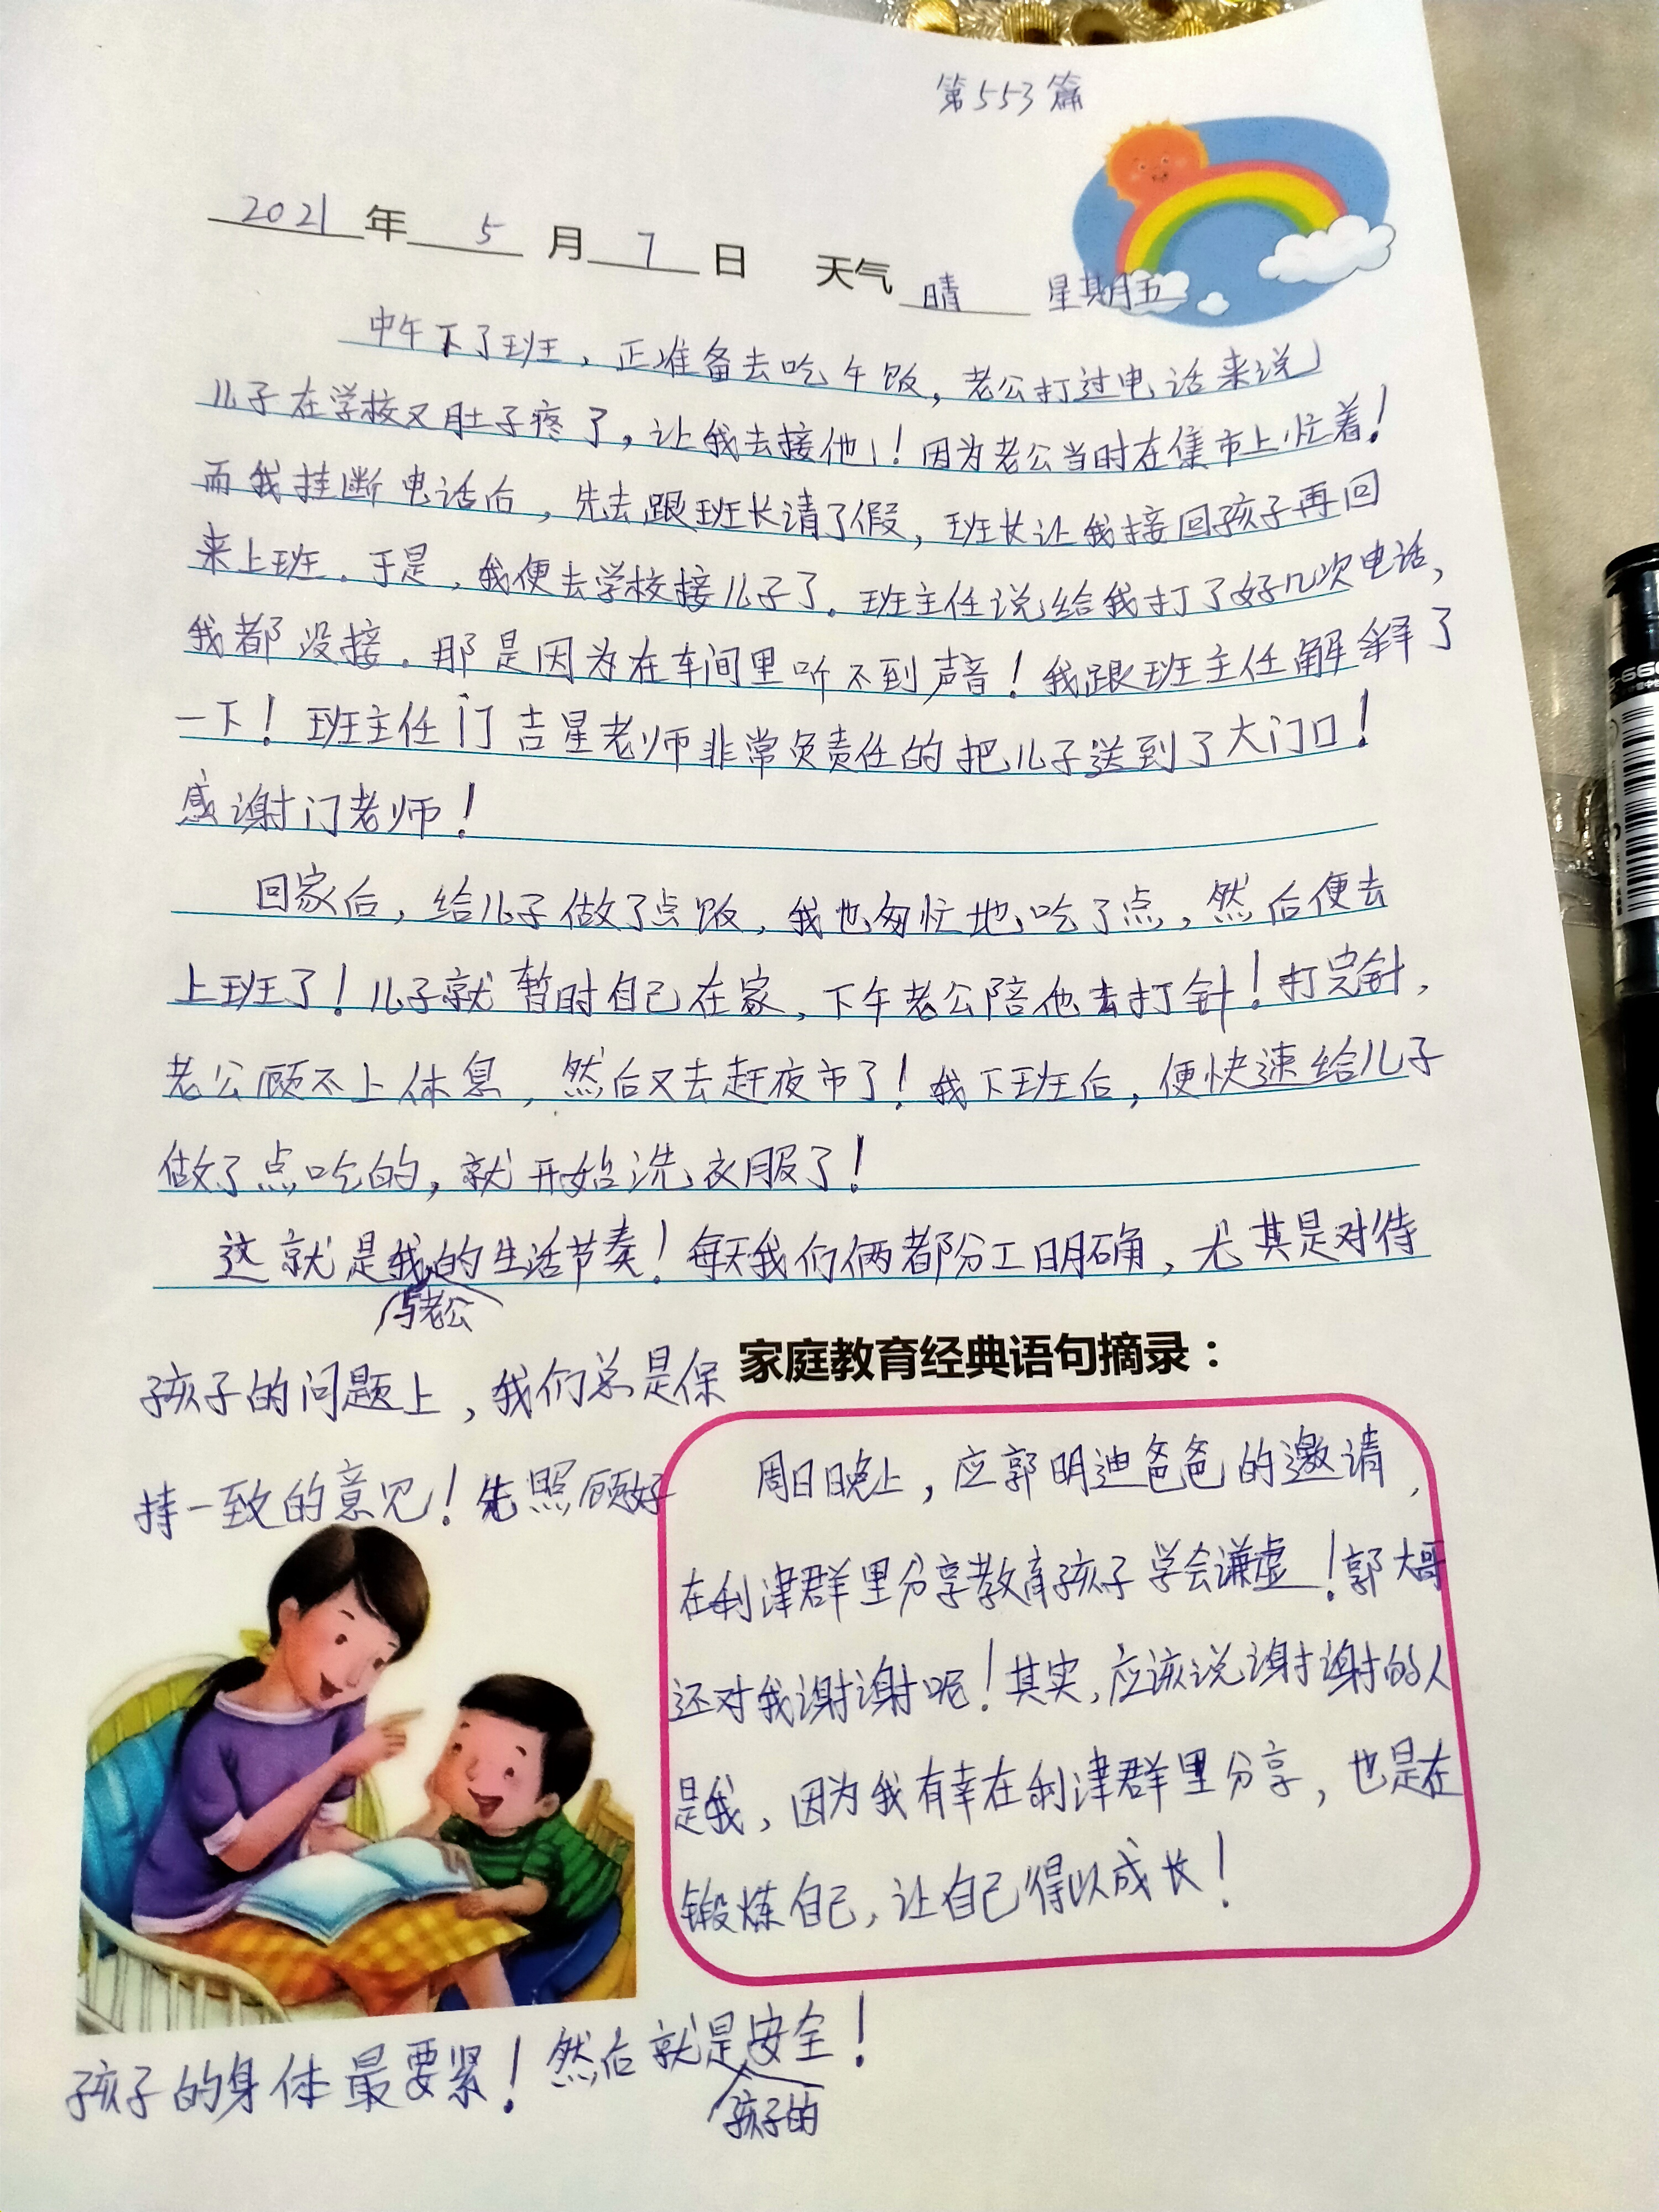 第553篇
2021年 5 月 7 日 天气 晴 星期五
中午下了班，正准备去吃午饭，老公打过电话来说
儿子在学校又肚子疼了，让我去接他！因为老公当时在集市上忙着！
而我挂断电话后，先去跟班长请了假，班长让我接回孩子再回
来上班。于是，我便去学校接儿子了。班主任说给我打了好几次电话，
我都没接。那是因为在车间里听不到声音！我跟班主任解释了
一下！班主任门吉星老师非常负责任的把儿子送到了大门口！
感谢门老师！
回家后，给儿子做了点饭，我也匆忙地吃了点，然后便去
上班了！儿子就暂时自己在家，下午老公陪他去打针！打完针，
老公顾不上休息，然后又去赶夜市了！我下班后，便快速给儿子
做了点吃的，就开始洗衣服了！
这就是我的生活节奏！每天我们俩都分工明确，尤其是对待
与老公
孩子的问题上，我们总是保
持一致的意见！先照顾好
孩子的身体最要紧！然后就是安全！
孩子的
家庭教育经典语句摘录：
周日晚上，应郭明迪爸爸的邀请，
在利津群里分享教育孩子学会谦虚！郭大哥
还对我谢谢呢！其实，应该说谢谢的人
是我，因为我有幸在利津群里分享，也是在
锻炼自己，让自己得以成长！